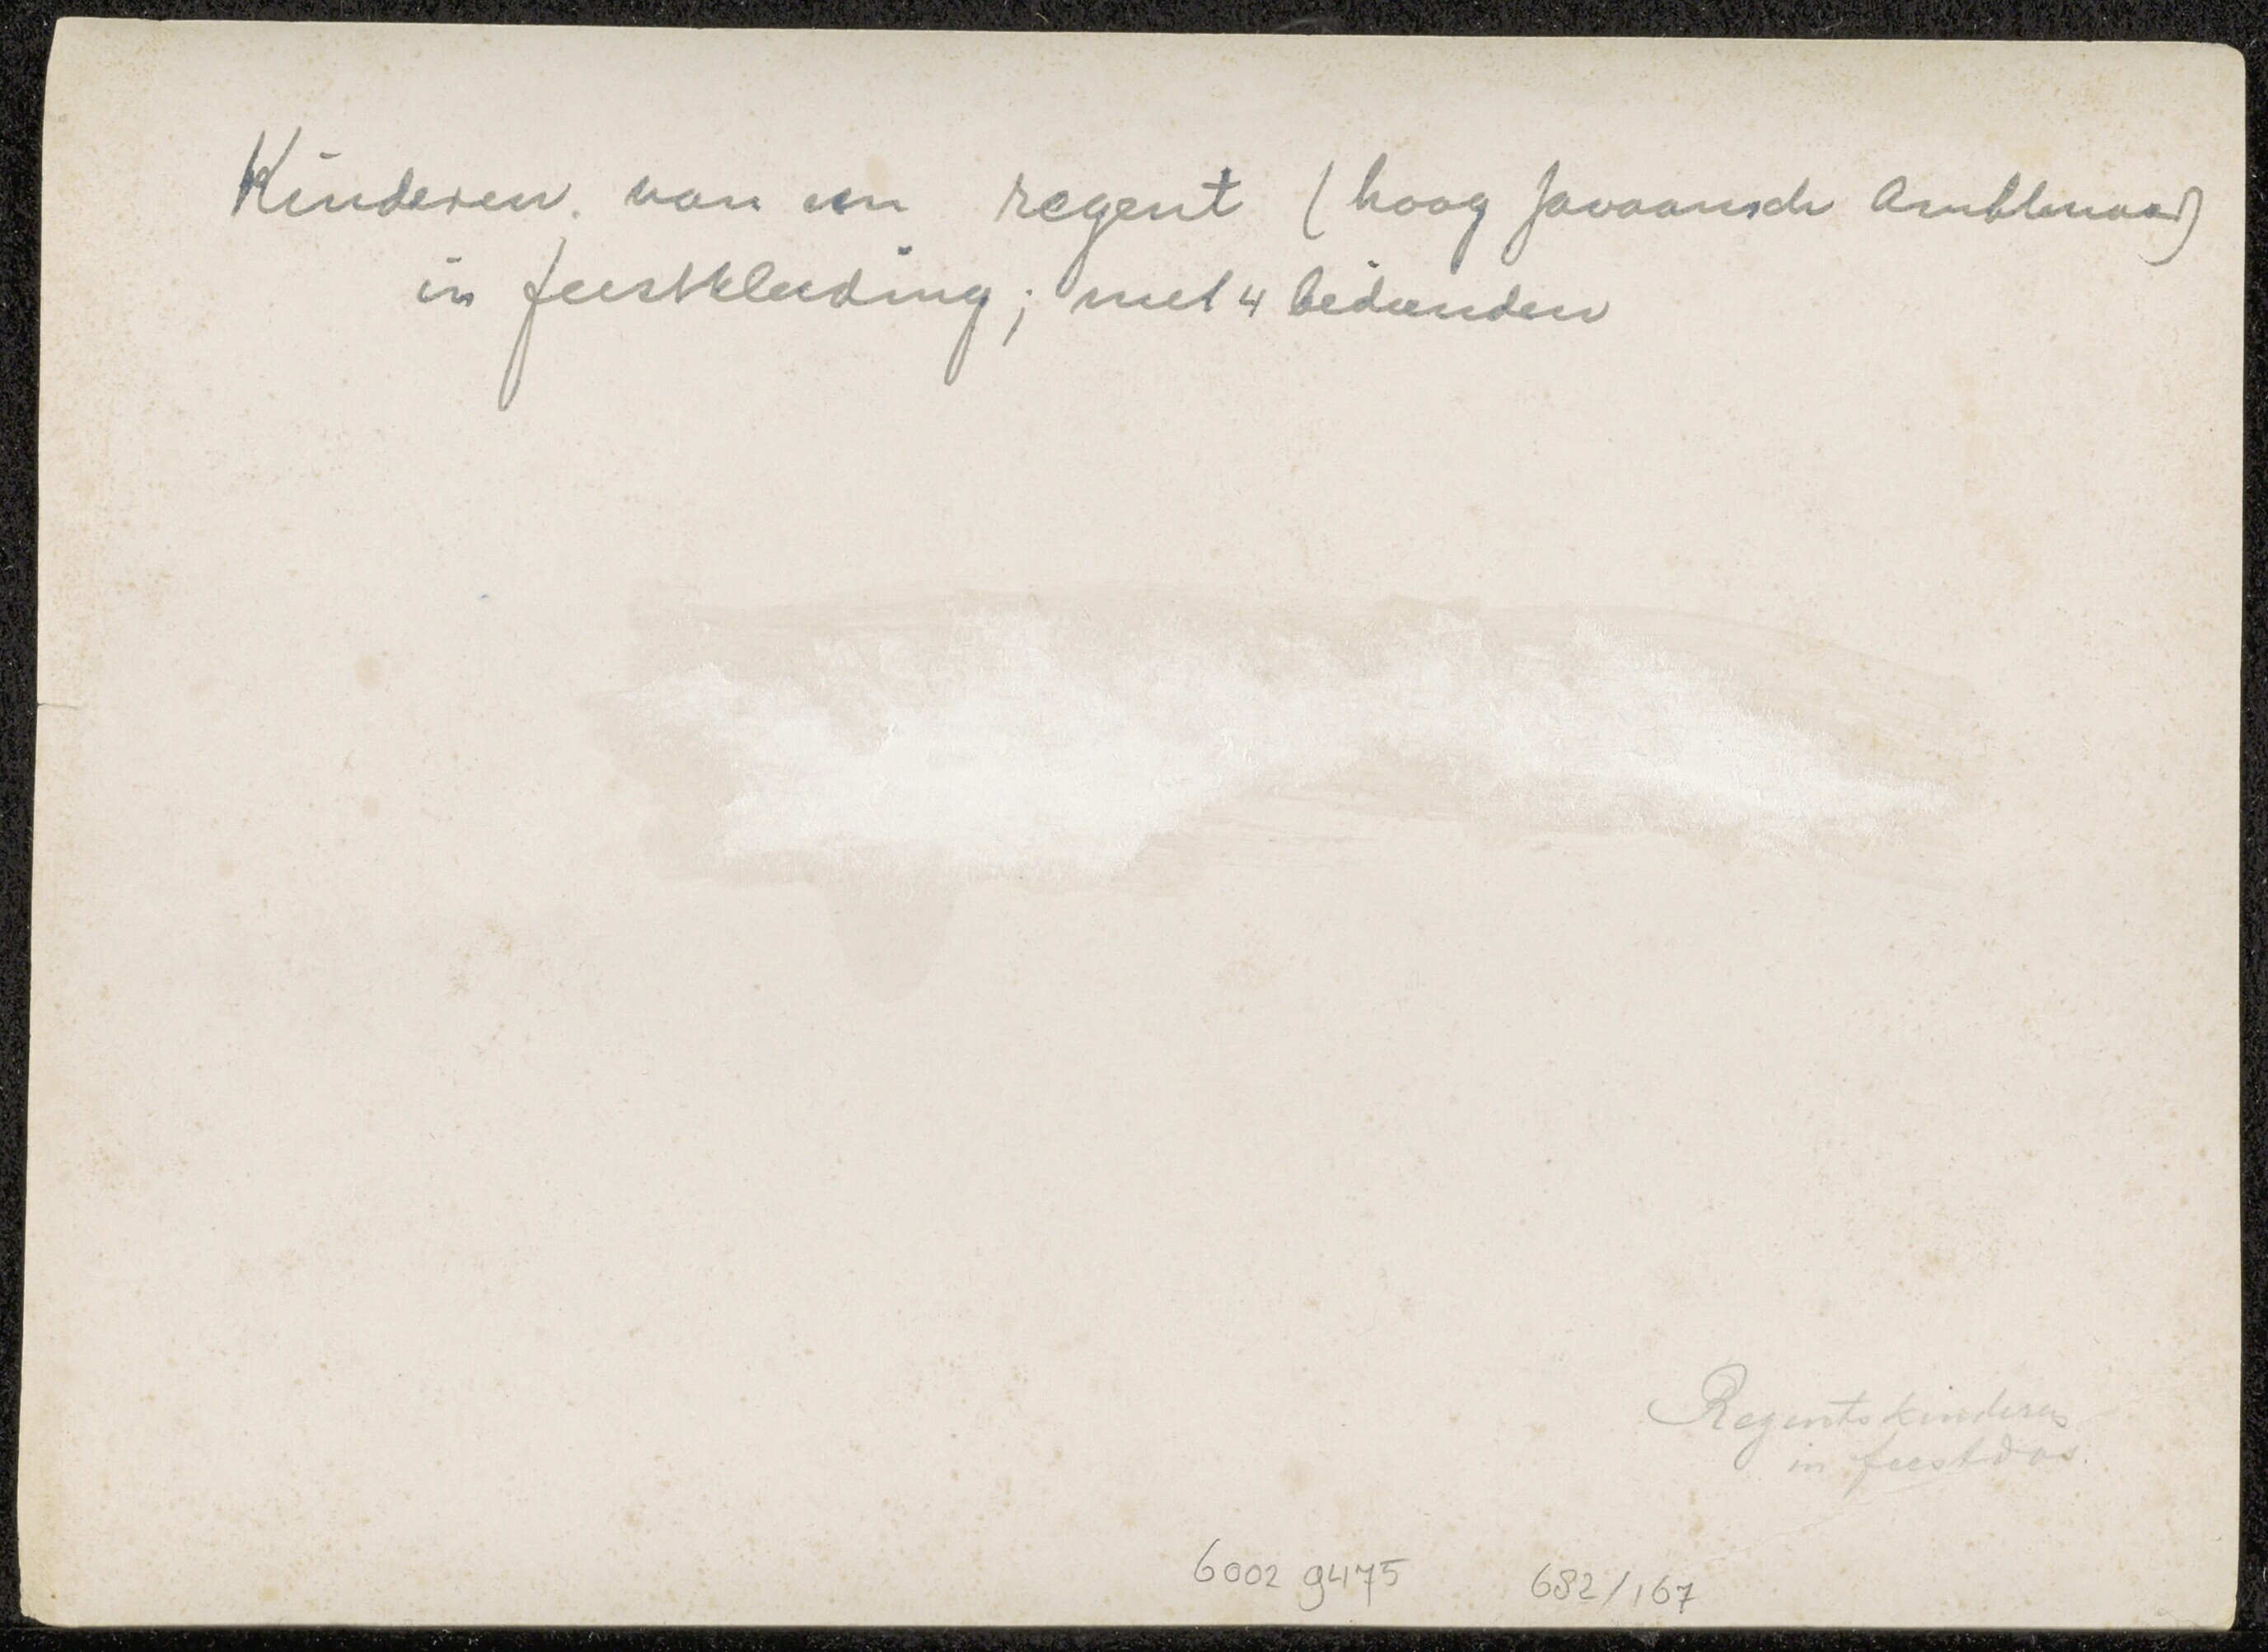 Kinderen van een regent (hoog Javaansch Ambtenaar)
in feestkleeding; met 4 bedienden
Regentskinderen
in feestdos.
6002 9475
682/167